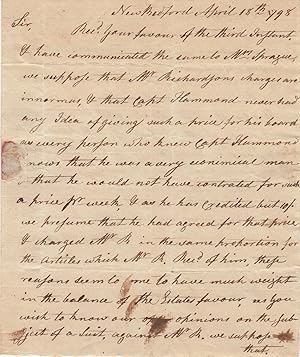 New Medford April 18th 1798
Sir,
Recd. Your favour of the third Instant,
& have communicated the same to Mrs Sprague,
we suppose that Mr Richardsons charges are
innormus, & that Capt Hammond never had
any Idea of giving such a price for his board
as every person who knew Capt Hammond
nows that he was a very econimical man
& that he would not have contrated for such
a price pr week & as he has credited but
we presume that he had agreed for that price
& charged Mr R in the same proportion for
the articles which Mr R. Recd. of him, these
reasons seem to me to have much weight
in the balance of the Estates favour, as you
wish to know our opinions on the Sub
ject of a Suit, against Mr R. we suppose
that.